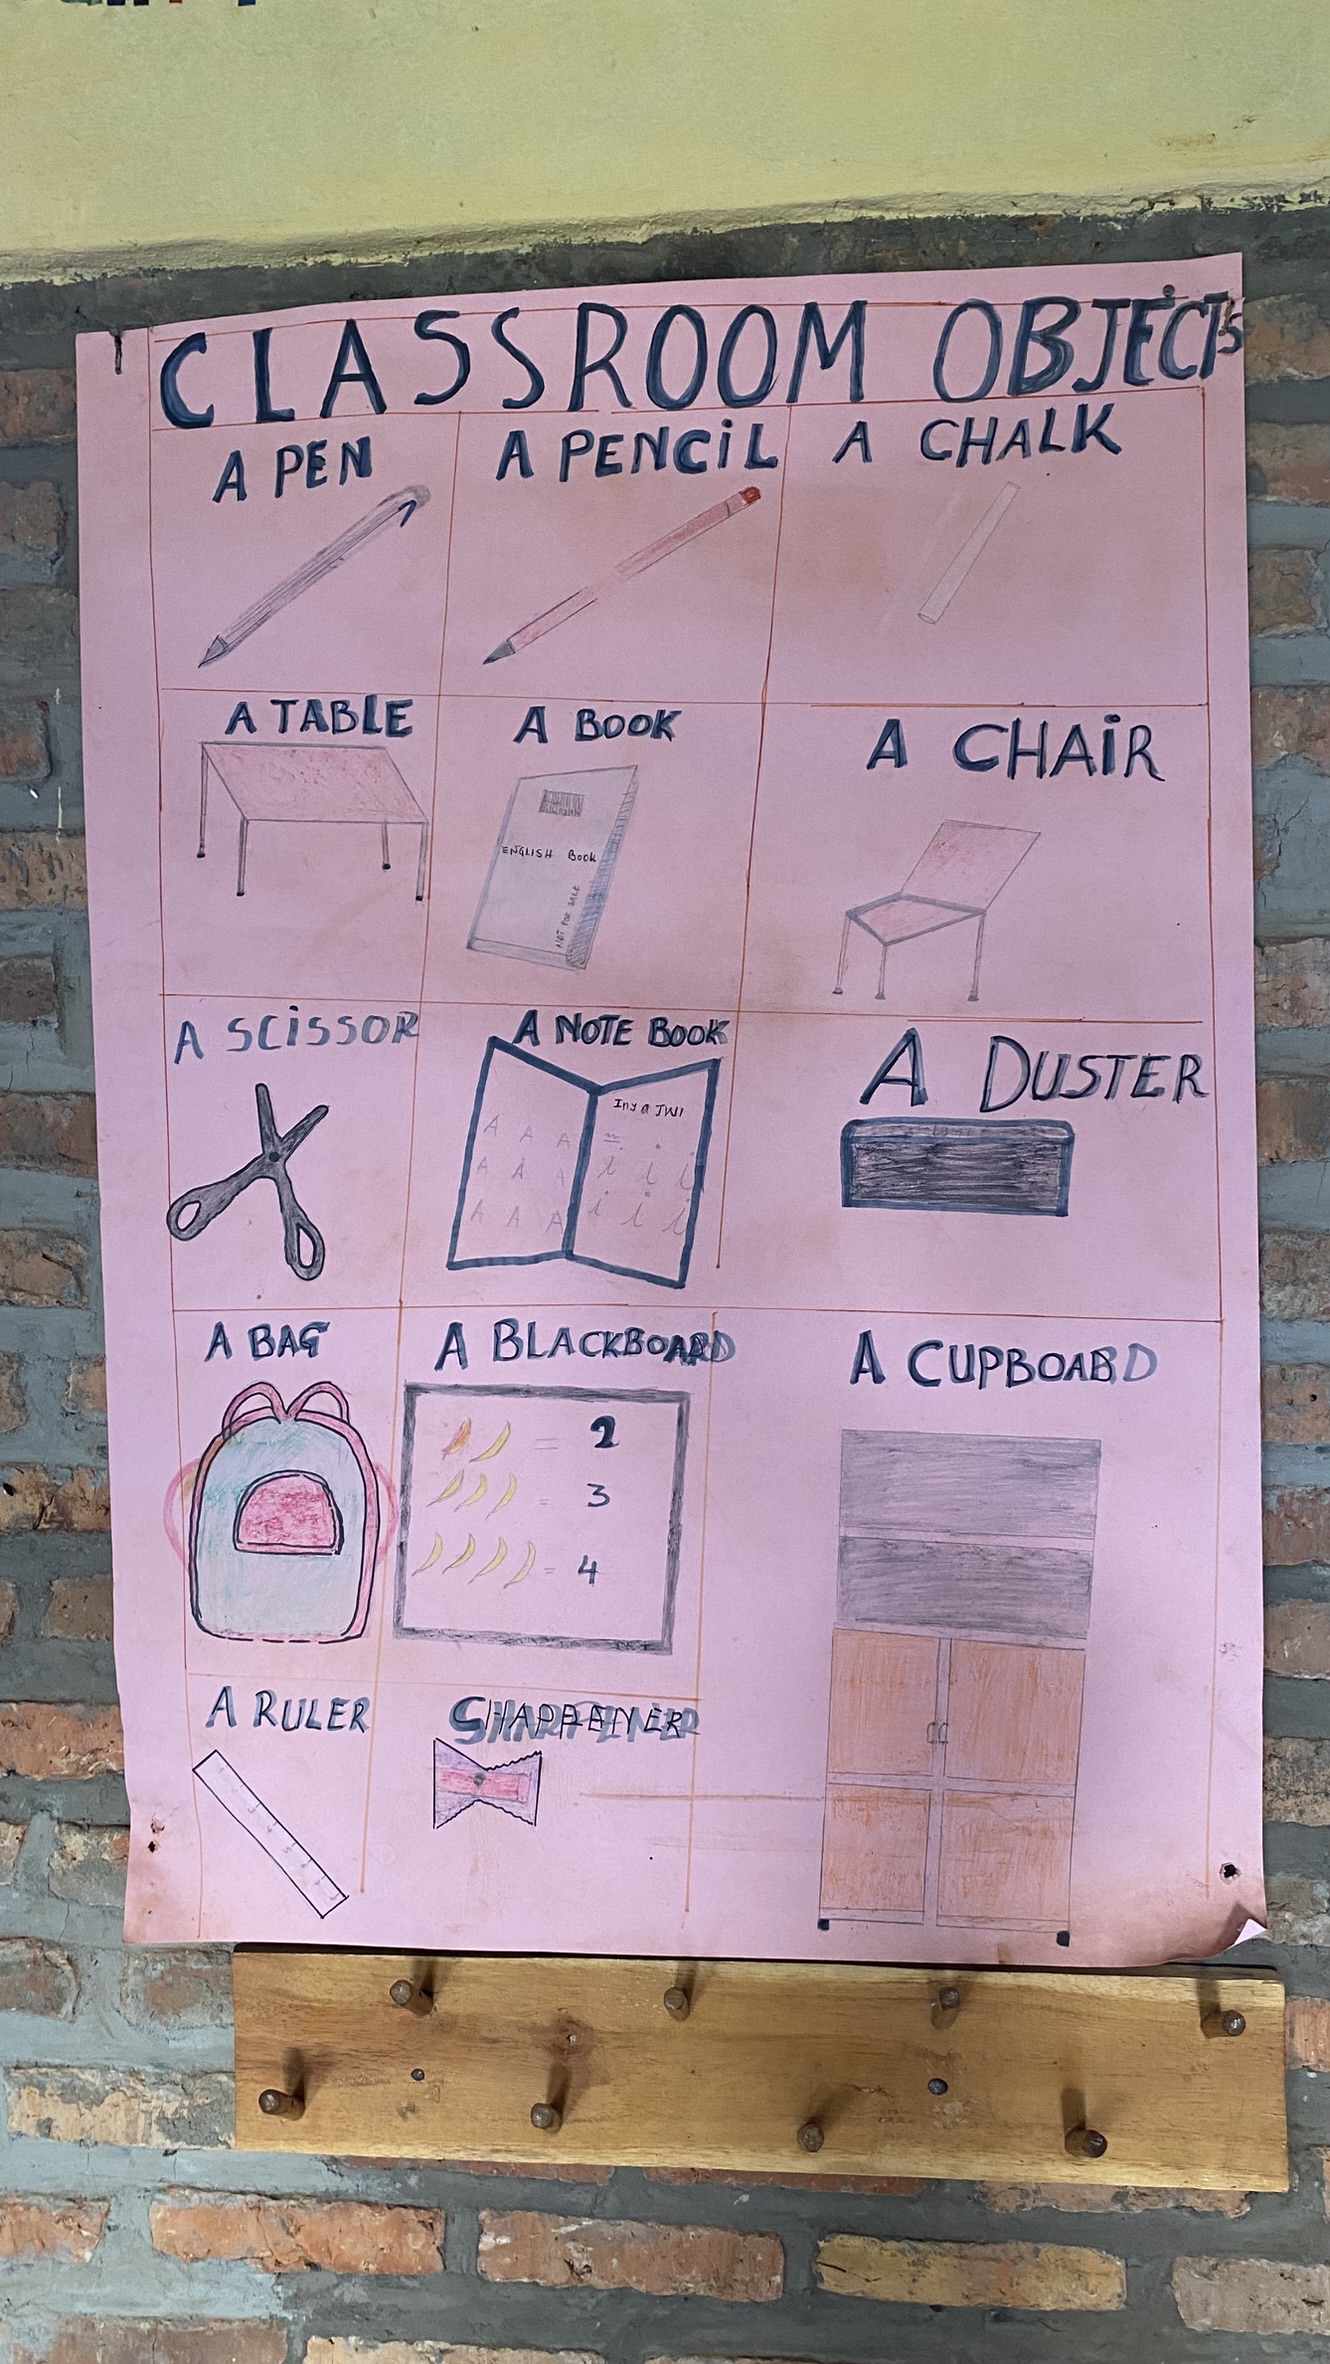 CLASSROOM OBJECTS
A PEN
A PENCiL
A CHALK
A TABLE
A BOOK
ENGLISH BOOK
NOT FOR SALE
A CHAiR
A SCiSSOR
A NOTE BOOK
A A A
A A A
A A A
i i i
i i i
A DUSTER
A BAG
A BLACKBOARD
= 2
= 3
= 4
A CUPBOARD
A RULER
SHARPENER